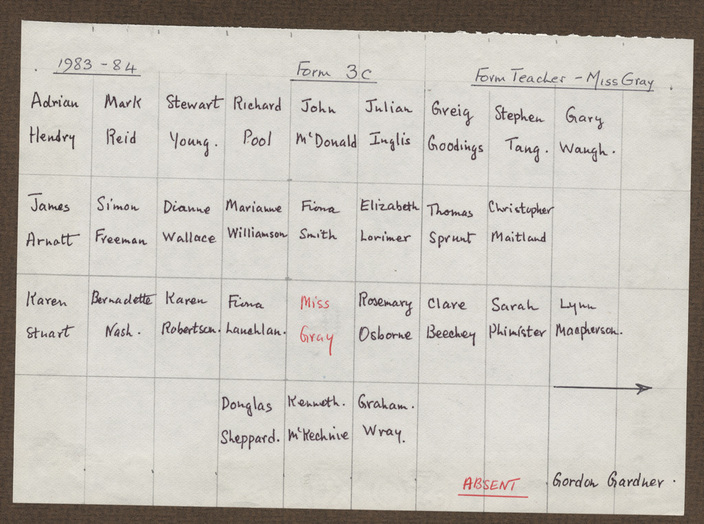 1983-84 Form 3c Form Teacher - Miss Gray
Adrian Mark Stewart Richard John Julian Greig Stephen Gary
Hendry Reid Young. Pool McDonald Inglis Goodings Tang. Waugh.
James Simon Dianne Marianne Fiona Elizabeth Thomas Christopher
Arnott Freeman Wallace Williamson Smith Lorimer Sprunt Maitland
Karen Bernadette Karen Fiona Miss Rosemary Clare Sarah Lynn
Stuart Nash. Robertson. Lauchlan. Gray Osborne Beechey Phimister Macpherson.
Douglas Kenneth. Graham.
Sheppard. McKechnie Wray.
ABSENT Gordon Gardner.